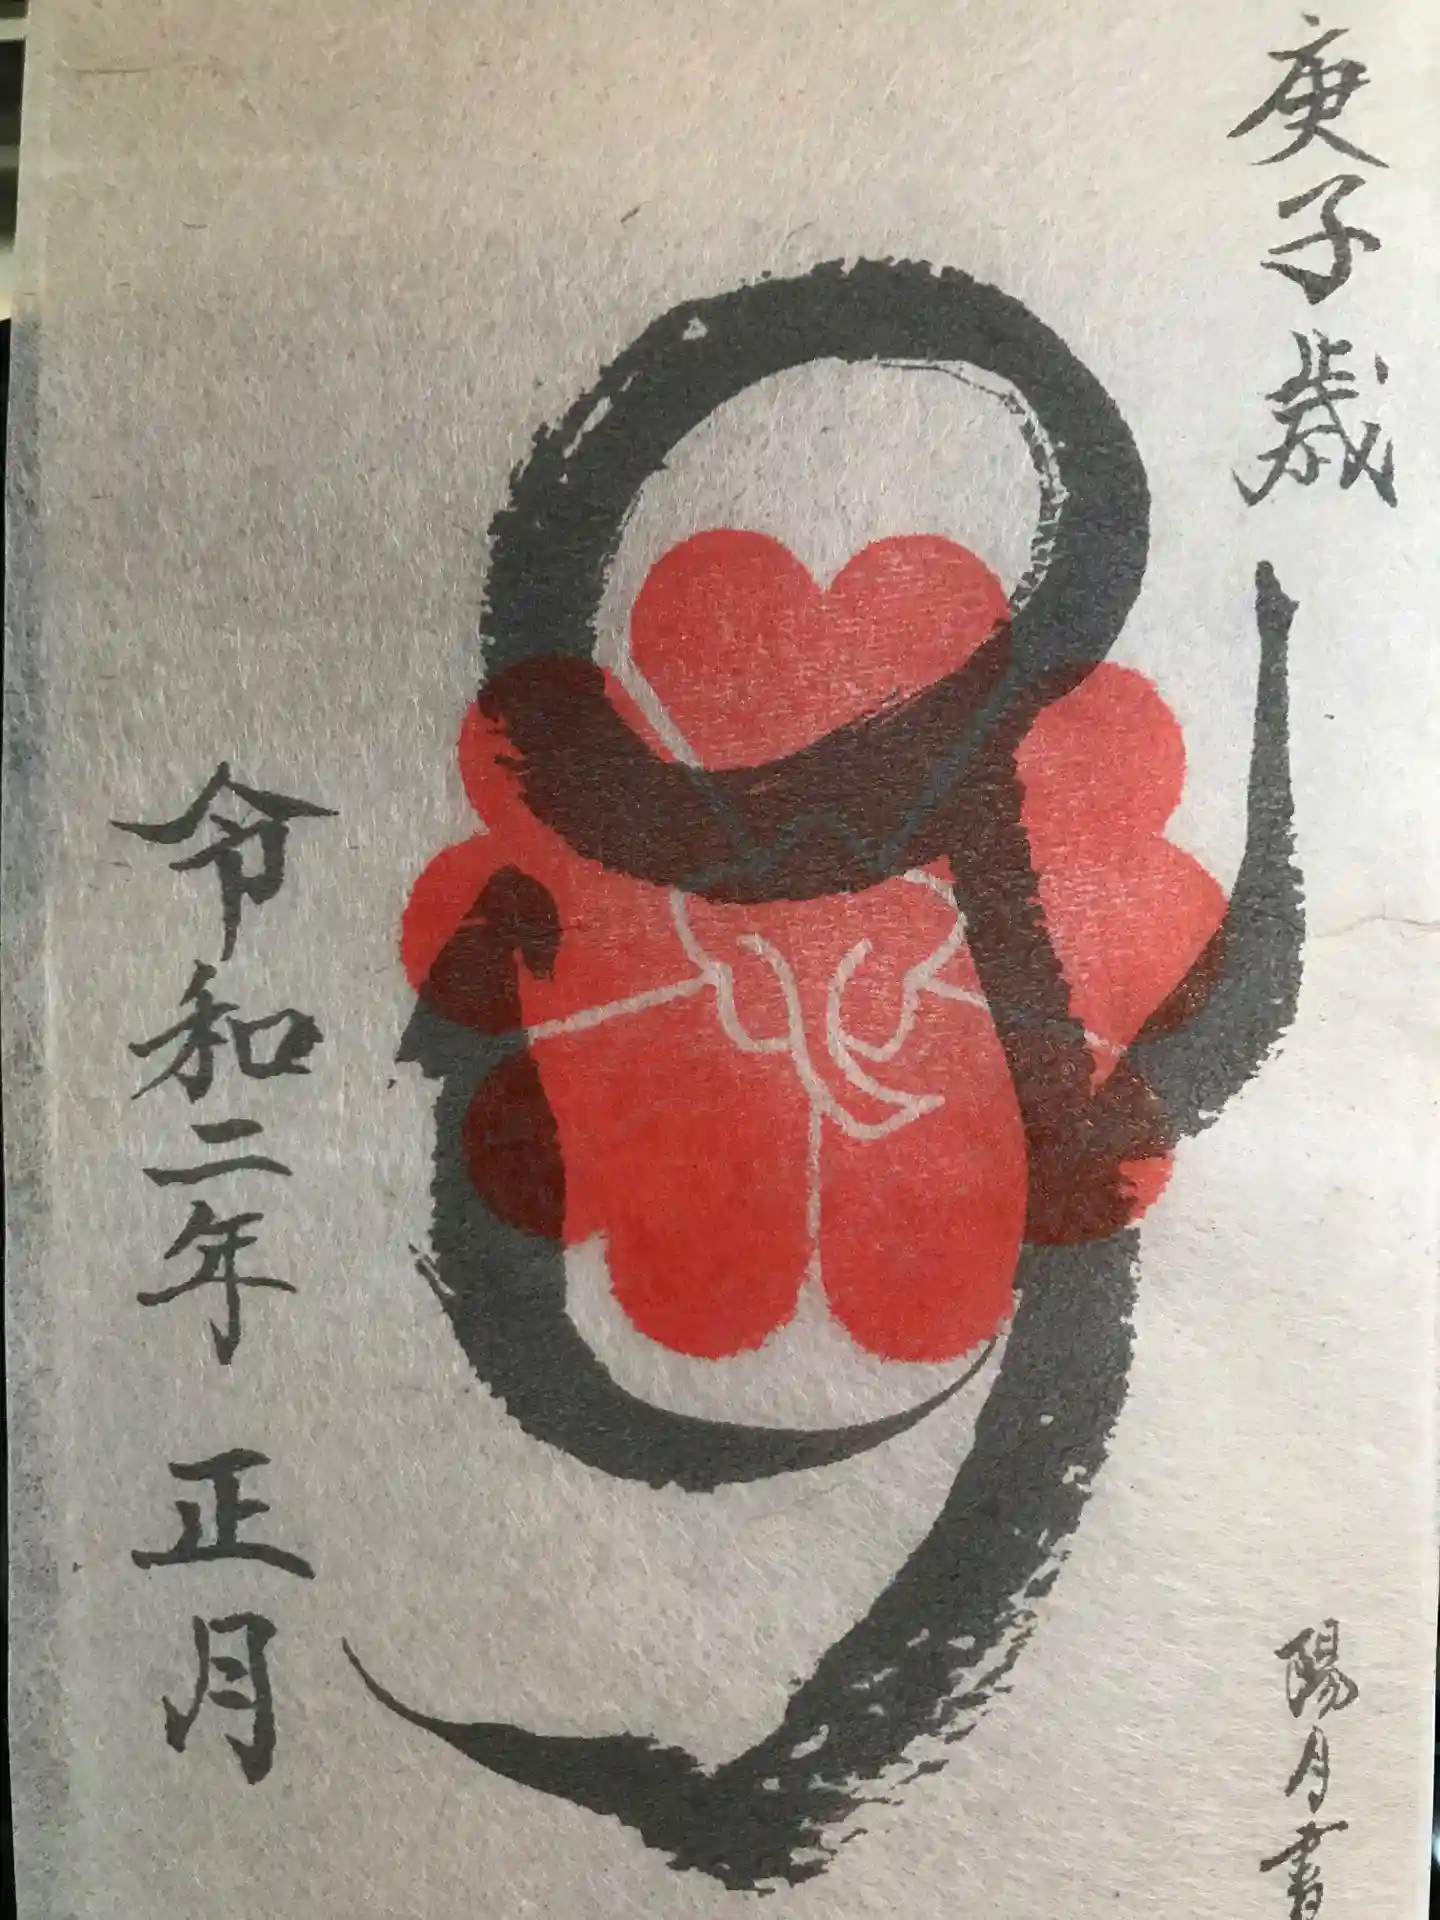 庚子歳
令和二年 正月
陽月書